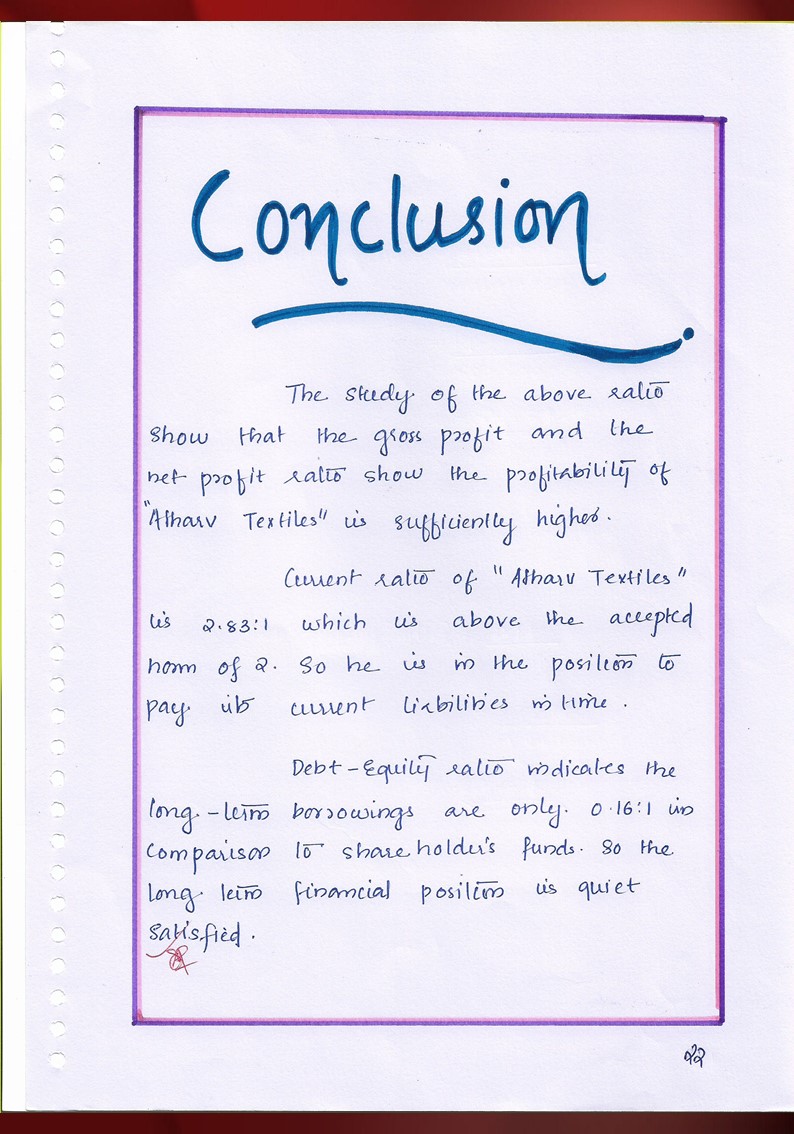 Conclusion
The study of the above ratio
show that the gross profit and the
net profit ratio show the profitability of
"Atharv Textiles" is sufficiently higher.
Current ratio of "Atharv Textiles"
is 2.83:1 which is above the accepted
norm of 2. So he is in the position to
pay its current liabilities in time.
Debt-Equity ratio indicates the
long-term borrowings are only. 0.16:1 in
comparison to share holder's funds. So the
long term financial position is quiet
satisfied.
22